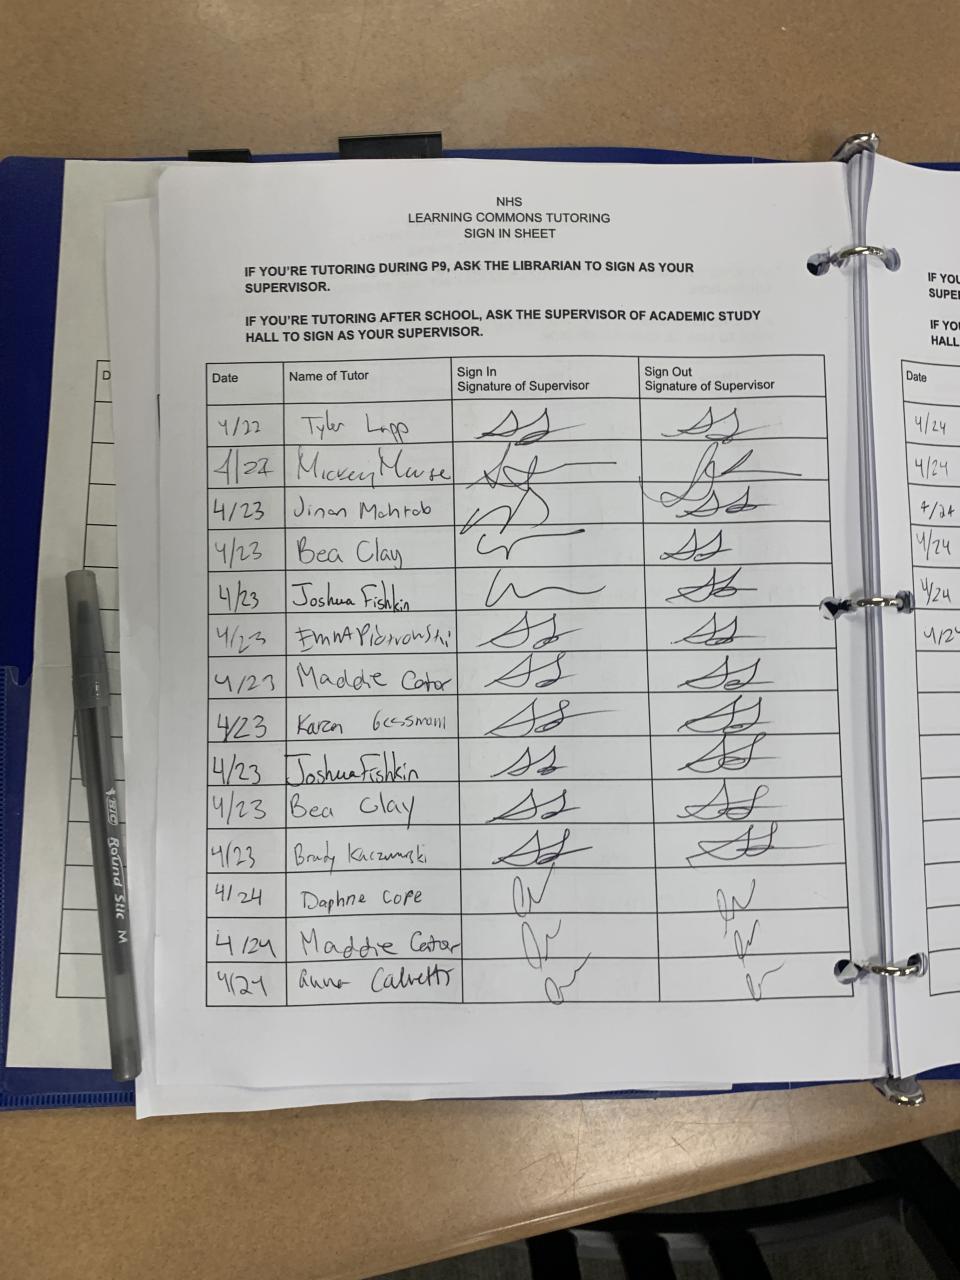 NHS
LEARNING COMMONS TUTORING
SIGN IN SHEET
IF YOU'RE TUTORING DURING P9, ASK THE LIBRARIAN TO SIGN AS YOUR
SUPERVISOR.
IF YOU'RE TUTORING AFTER SCHOOL, ASK THE SUPERVISOR OF ACADEMIC STUDY
HALL TO SIGN AS YOUR SUPERVISOR.
Date Name of Tutor Sign In Signature of Supervisor Sign Out Signature of Supervisor
4/22 Tyler Lapp
4/22 Mickey Mouse
4/23 Jinan Mahrab
4/23 Bea Clay
4/23 Joshua Fishkin
4/23 Emma Piotrowski
4/23 Maddie Cator
4/23 Karen
4/23 Joshua Fishkin
4/23 Bea Clay
4/23 Brady
4/24 Daphne Cope
4/24 Maddie Cator
4/24 Anna
BIC Round Stic M
IF YOU
SUPE
IF YO
HALL
Date
4/24
4/24
4/24
4/24
4/24
4/24
D